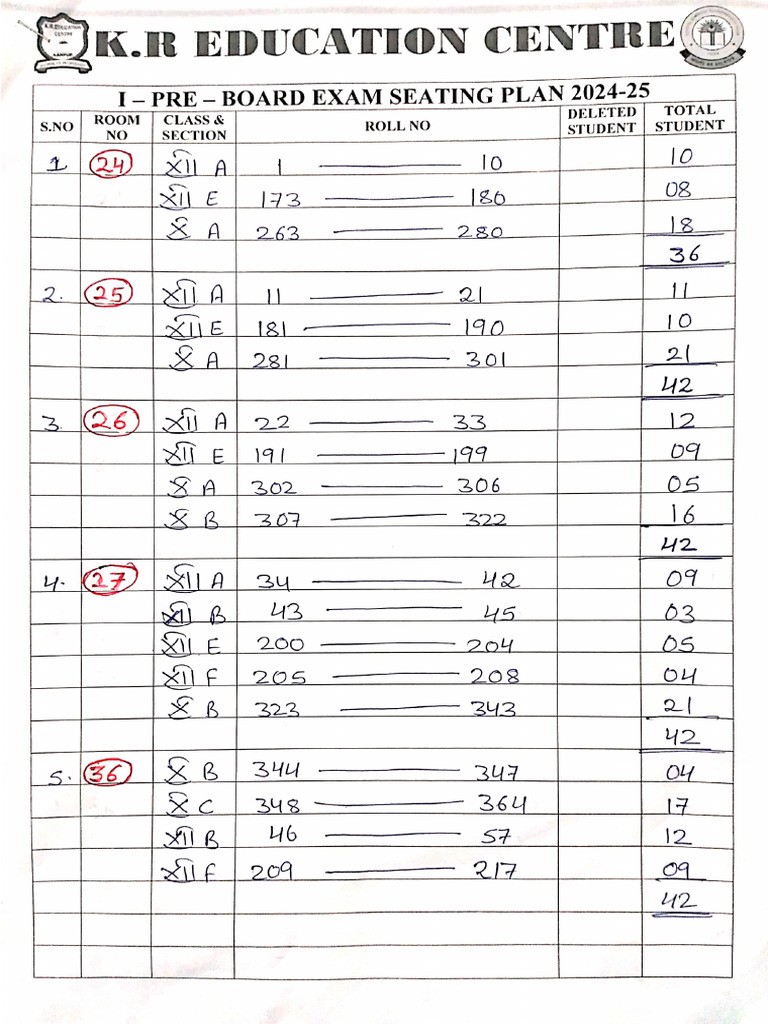 K.R EDUCATION CENTRE
I – PRE – BOARD EXAM SEATING PLAN 2024-25
S.NO ROOM NO CLASS & SECTION ROLL NO DELETED STUDENT TOTAL STUDENT
1 24 XII A 1 — 10 10
XII E 173 — 180 08
X A 263 — 280 18
36
2. 25 XII A 11 — 21 11
XII E 181 — 190 10
X A 281 — 301 21
42
3. 26 XII A 22 — 33 12
XII E 191 — 199 09
X A 302 — 306 05
X B 307 — 322 16
42
4. 27 XII A 34 — 42 09
XII B 43 — 45 03
XII E 200 — 204 05
XII F 205 — 208 04
X B 323 — 343 21
42
5. 36 X B 344 — 347 04
X C 348 — 364 17
XII B 46 — 57 12
XII F 209 — 217 09
42